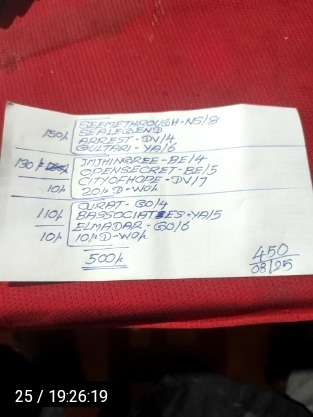 SEEMETHROUGH-NS/8
150/- SEALEGEND
ARREST-DV/4
GULTARI-YA/6
130/- JMJHINGREE-BE/4
OPENSECRET-BE/5
10/- CITYOFHOPE-DV/7
20/- D-WO/-
QURAT-GO/4
110/- BASSOCIATES-YA/5
ELMADAR-GO/6
10/- 10/- D-WO/-
500/-
450
08/25
25 / 19:26:19